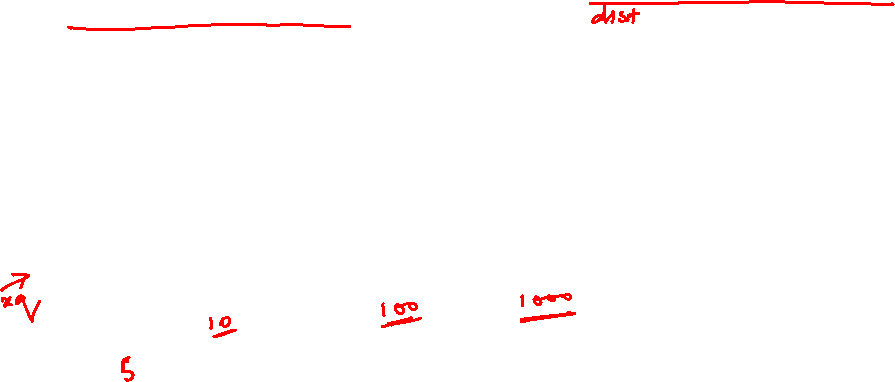 dist
xq
10 100 1000
5